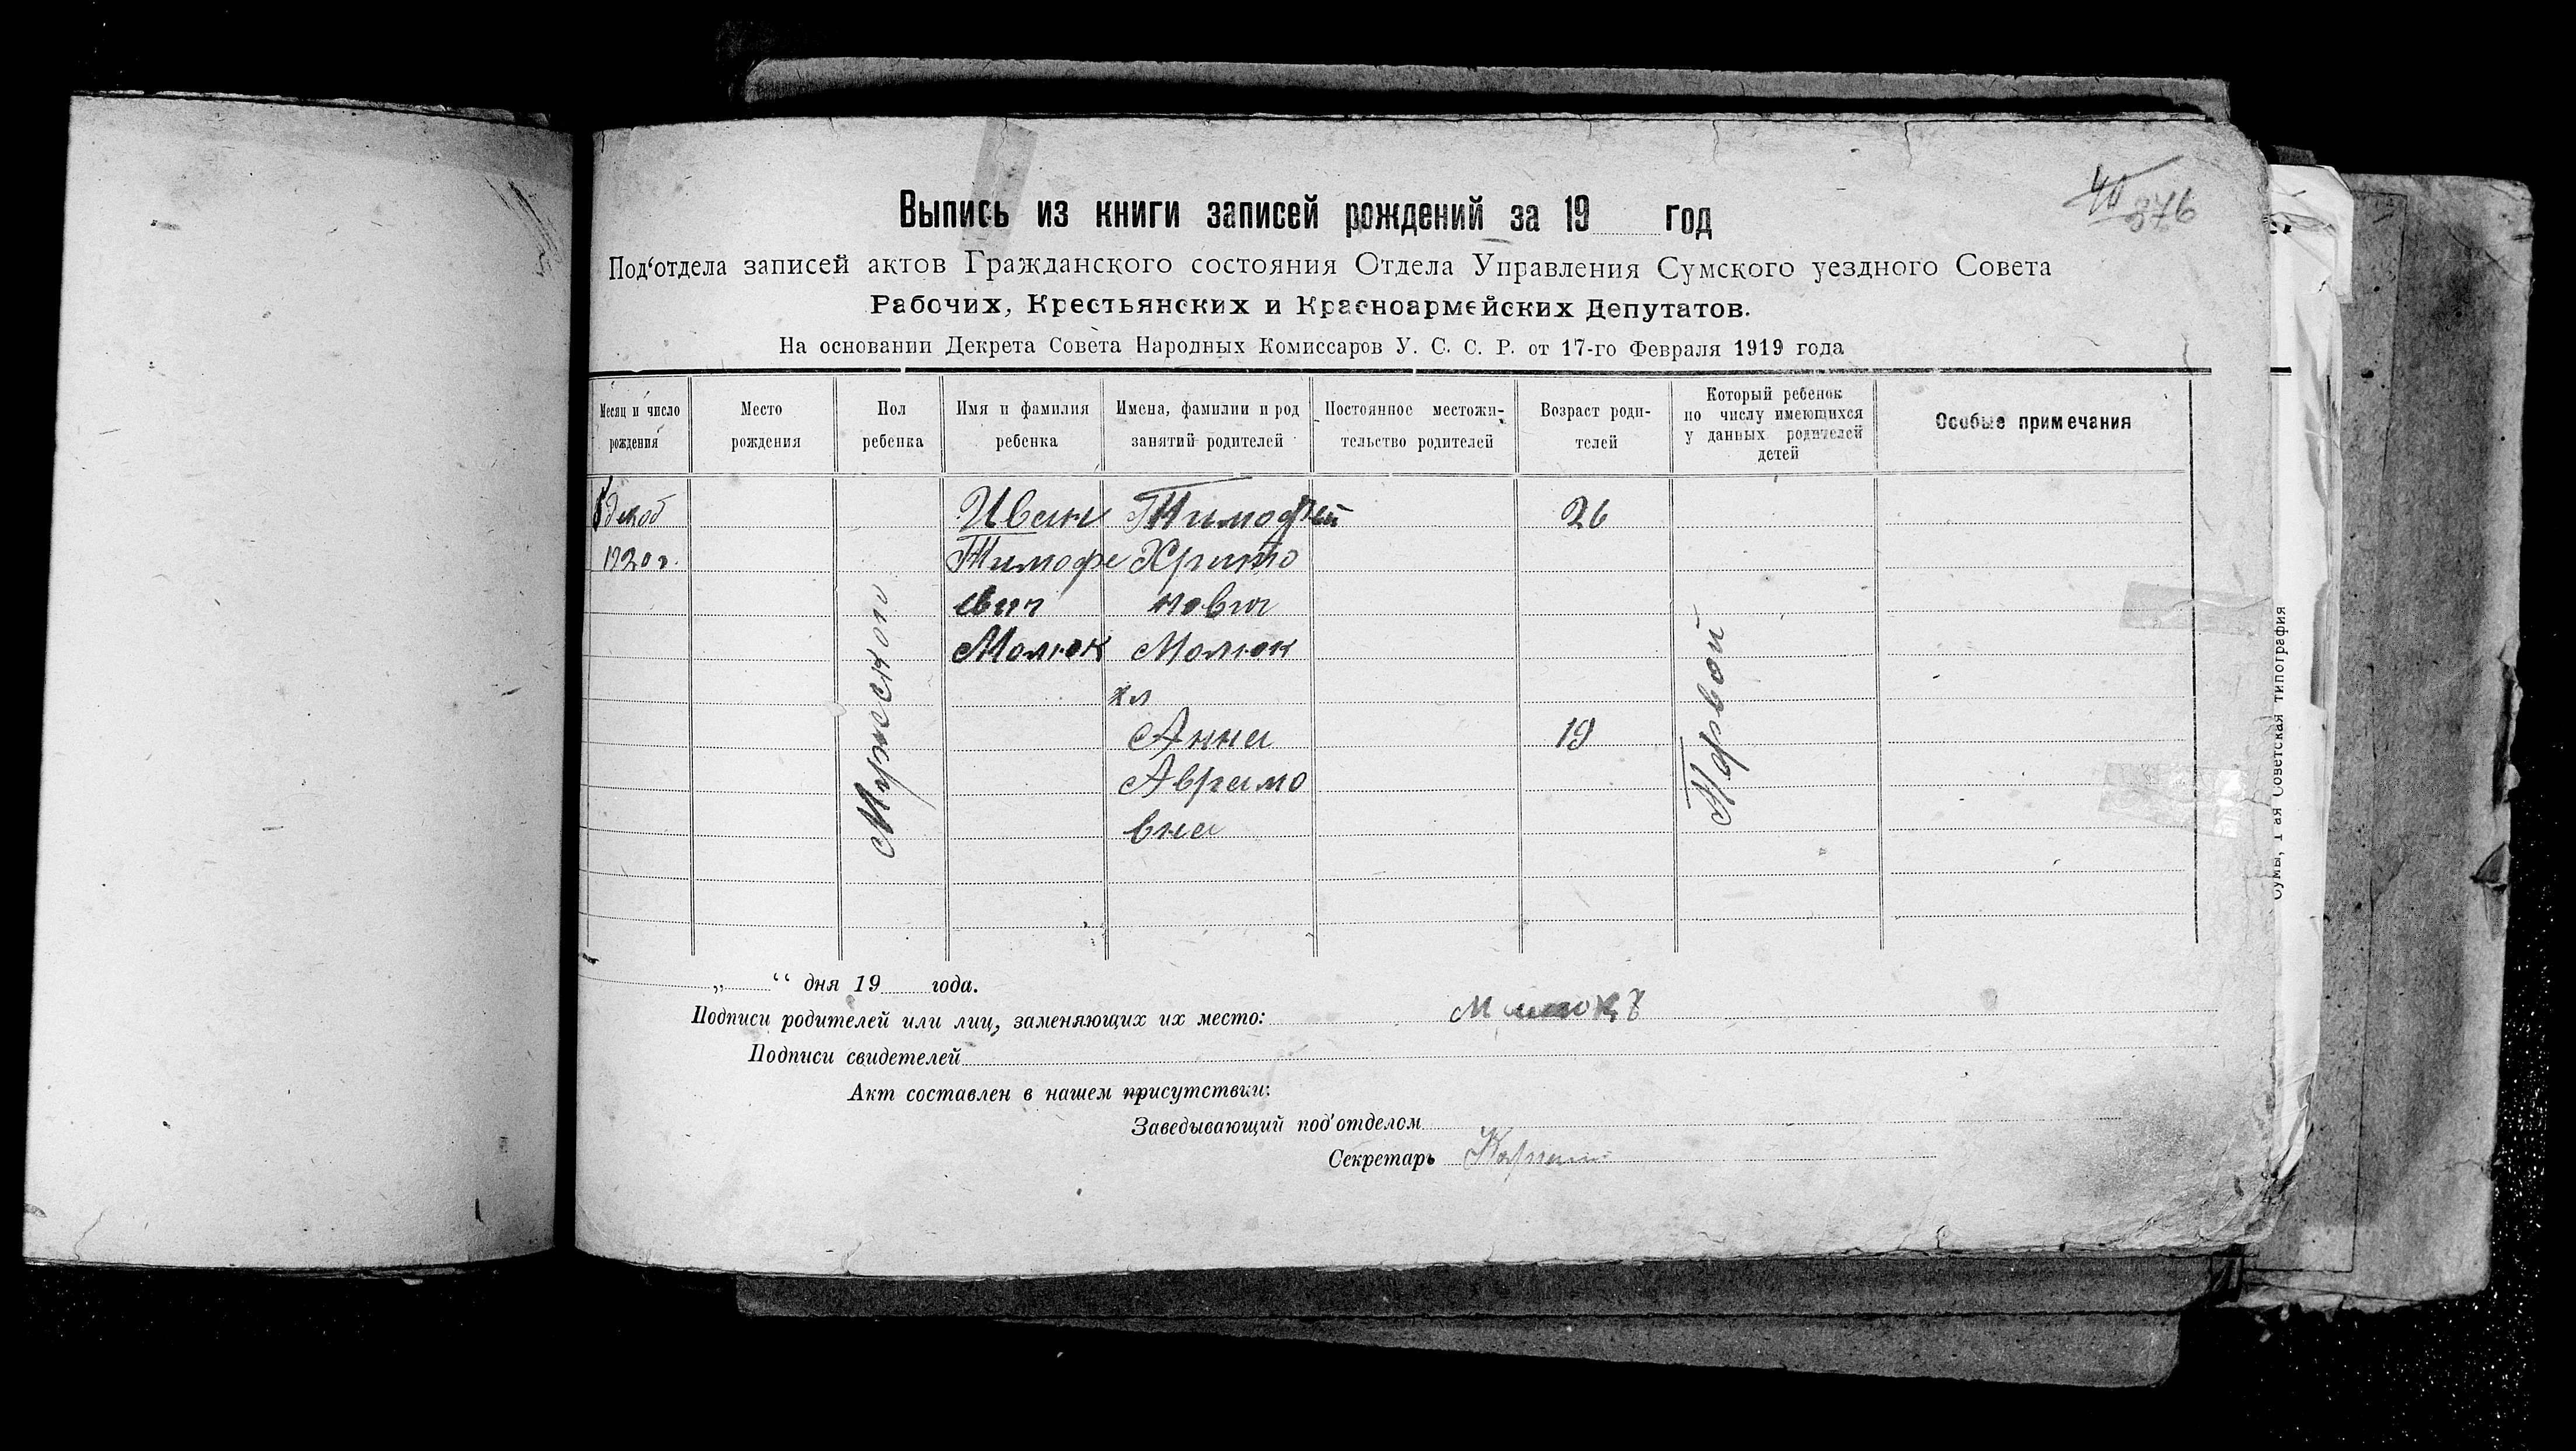 40
876
Выпись из книги записей рождений за 19 год
Под‘отдела записей актов Гражданского состояния Отдела Управления Сумского уездного Совета
Рабочих, Крестьянских и Красноармейских Депутатов.
На основании Декрета Совета Народных Комиссаров У. С. С. Р. от 17-го Февраля 1919 года
Месяц и число рождения
Место рождения
Пол ребенка
Имя и фамилия ребенка
Имена, фамилии и род занятий родителей
Постоянное местожительство родителей
Возраст родителей
Который ребенок по числу имеющихся у данных родителей детей
Особые примечания
декаб
1920 г.
Мужского
Иван
Тимофе
евич
Молюк
Тимофей
Харито
нович
Молюк
хл
Анна
Аврамо
вна
26
19
Первой
„ “ дня 19 года.
Подписи родителей или лиц, заменяющих их место:
Подписи свидетелей
Акт составлен в нашем присутствии:
Заведывающий под‘отделом
Секретарь
Сумы, 1 ая Советская типография